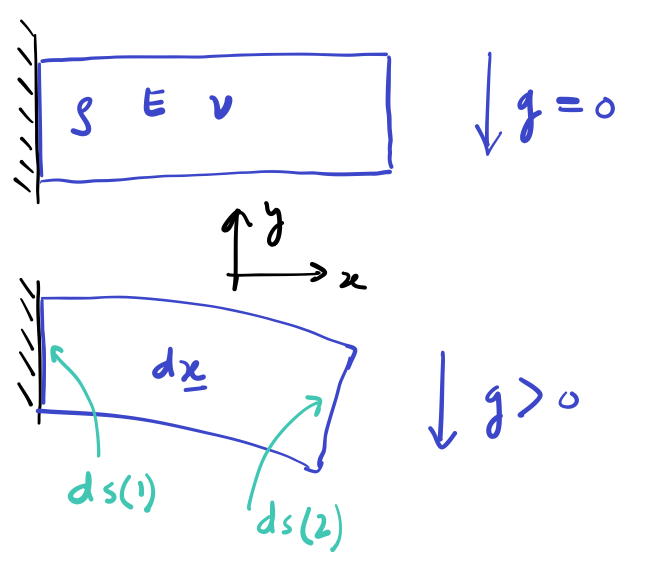 ρ E ν
g = 0
y
x
dx
g > 0
ds(1)
ds(2)